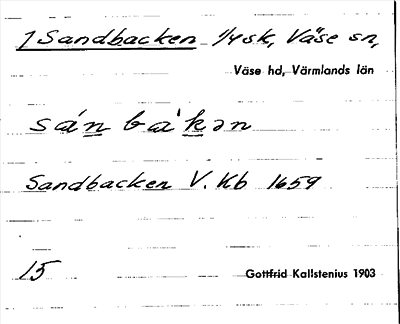 1 Sandbacken 1/4 sk, Väse sn,
Väse hd, Värmlands län
sán bàkən
Sandbacken V. Kb 1659
15 Gottfrid Kallstenius 1903